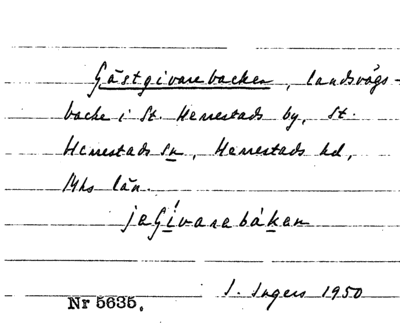 Gästgivarebacken, landsvägs-
backe i St. Herrestads by, St.
Herrestads sn, Herrestads hd,
Mhs län.
jaGívarebákan
I. Ingers 1950
Nr 5635.